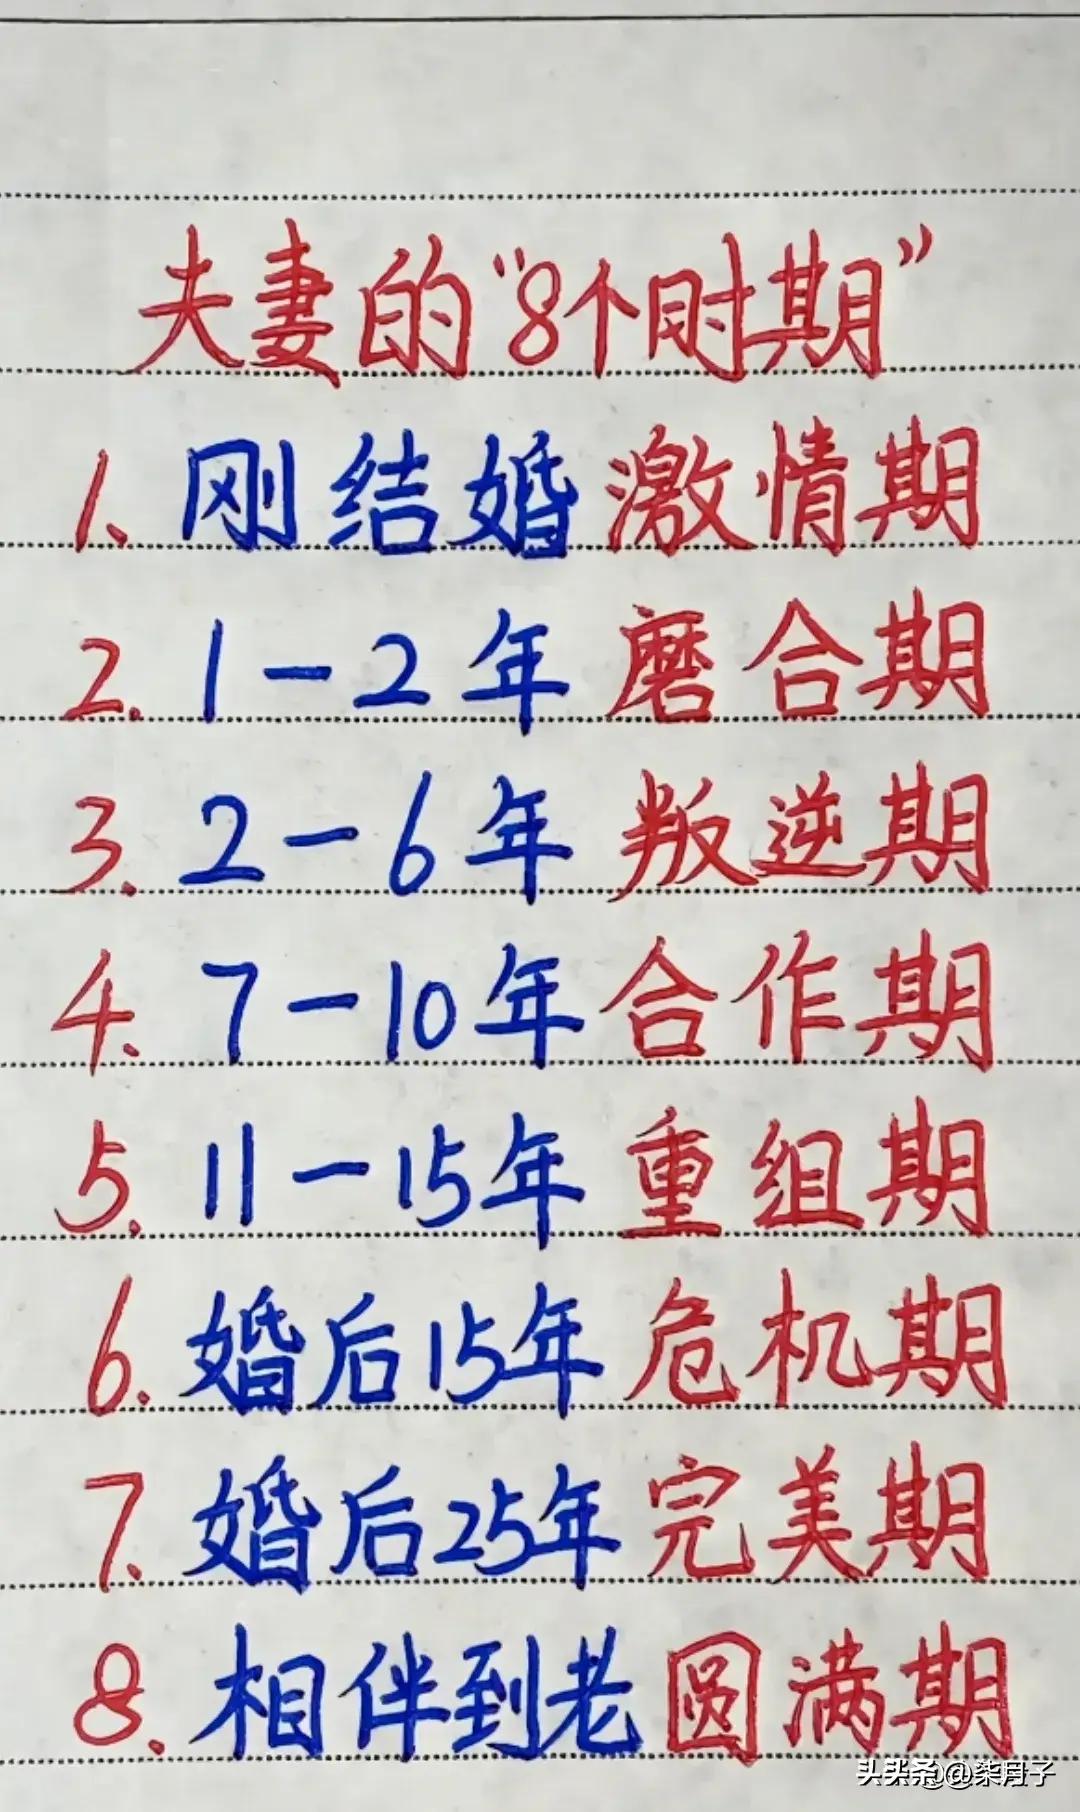 夫妻的“8个时期”
1、刚结婚 激情期
2. 1-2年 磨合期
3. 2-6年 叛逆期
4. 7-10年 合作期
5. 11-15年 重组期
6. 婚后15年 危机期
7. 婚后25年 完美期
8. 相伴到老 圆满期
头条@柒月子